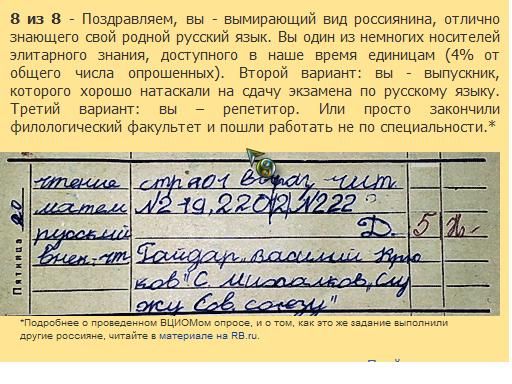 8 из 8 - Поздравляем, вы - вымирающий вид россиянина, отлично
знающего свой родной русский язык. Вы один из немногих носителей
элитарного знания, доступного в наше время единицам (4% от
общего числа опрошенных). Второй вариант: вы - выпускник,
которого хорошо натаскали на сдачу экзамена по русскому языку.
Третий вариант: вы – репетитор. Или просто закончили
филологический факультет и пошли работать не по специальности.*
Пятница 20
чтение стр чит
матем №219, 220 №222
русский Д. 5
внек. чт Гайдар „Василий Крю
ков" С. Михалков „Слу
жу Сов. союзу"
*Подробнее о проведенном ВЦИОМом опросе, и о том, как это же задание выполнили
другие россияне, читайте в материале на RB.ru.